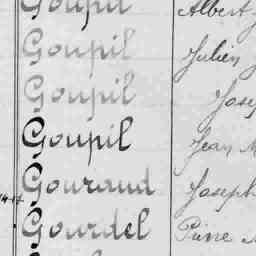 Goupil Albert
Goupil Julien
Goupil Jose
Goupil Jean M
Gouraud Joseph
Gourdel Pierre